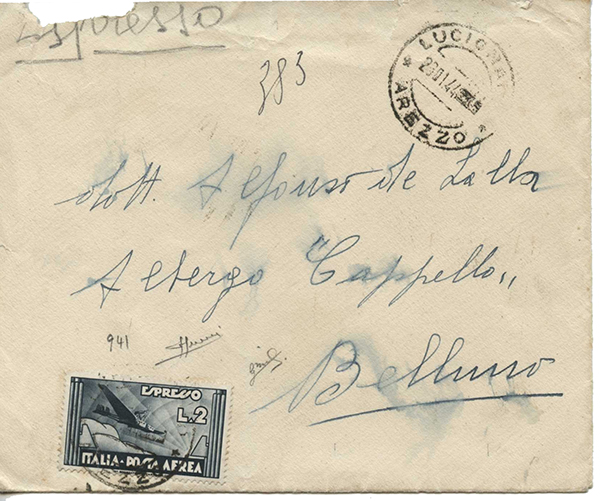 Espresso
383
LUCIGNANO
AREZZO
dott. Alfonso de Lalla
Albergo "Cappello"
Belluno
941
ESPRESSO
L.2
ITALIA-POSTA AEREA
AREZZO